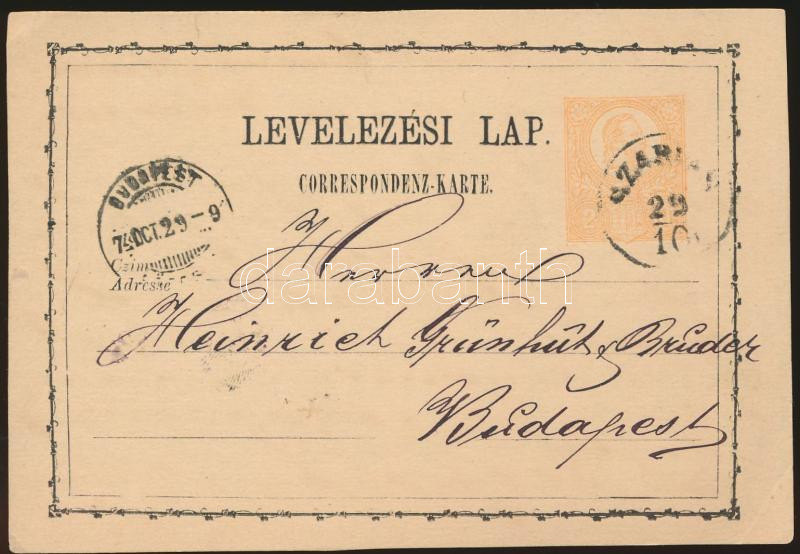 LEVELEZÉSI LAP.
CORRESPONDENZ-KARTE.
BUDAPEST
74 OCT. 29 - 9
29
10
Czim
Adresse
Herren
Heinrich Grünhüt & Bruder
Budapest
darabanth